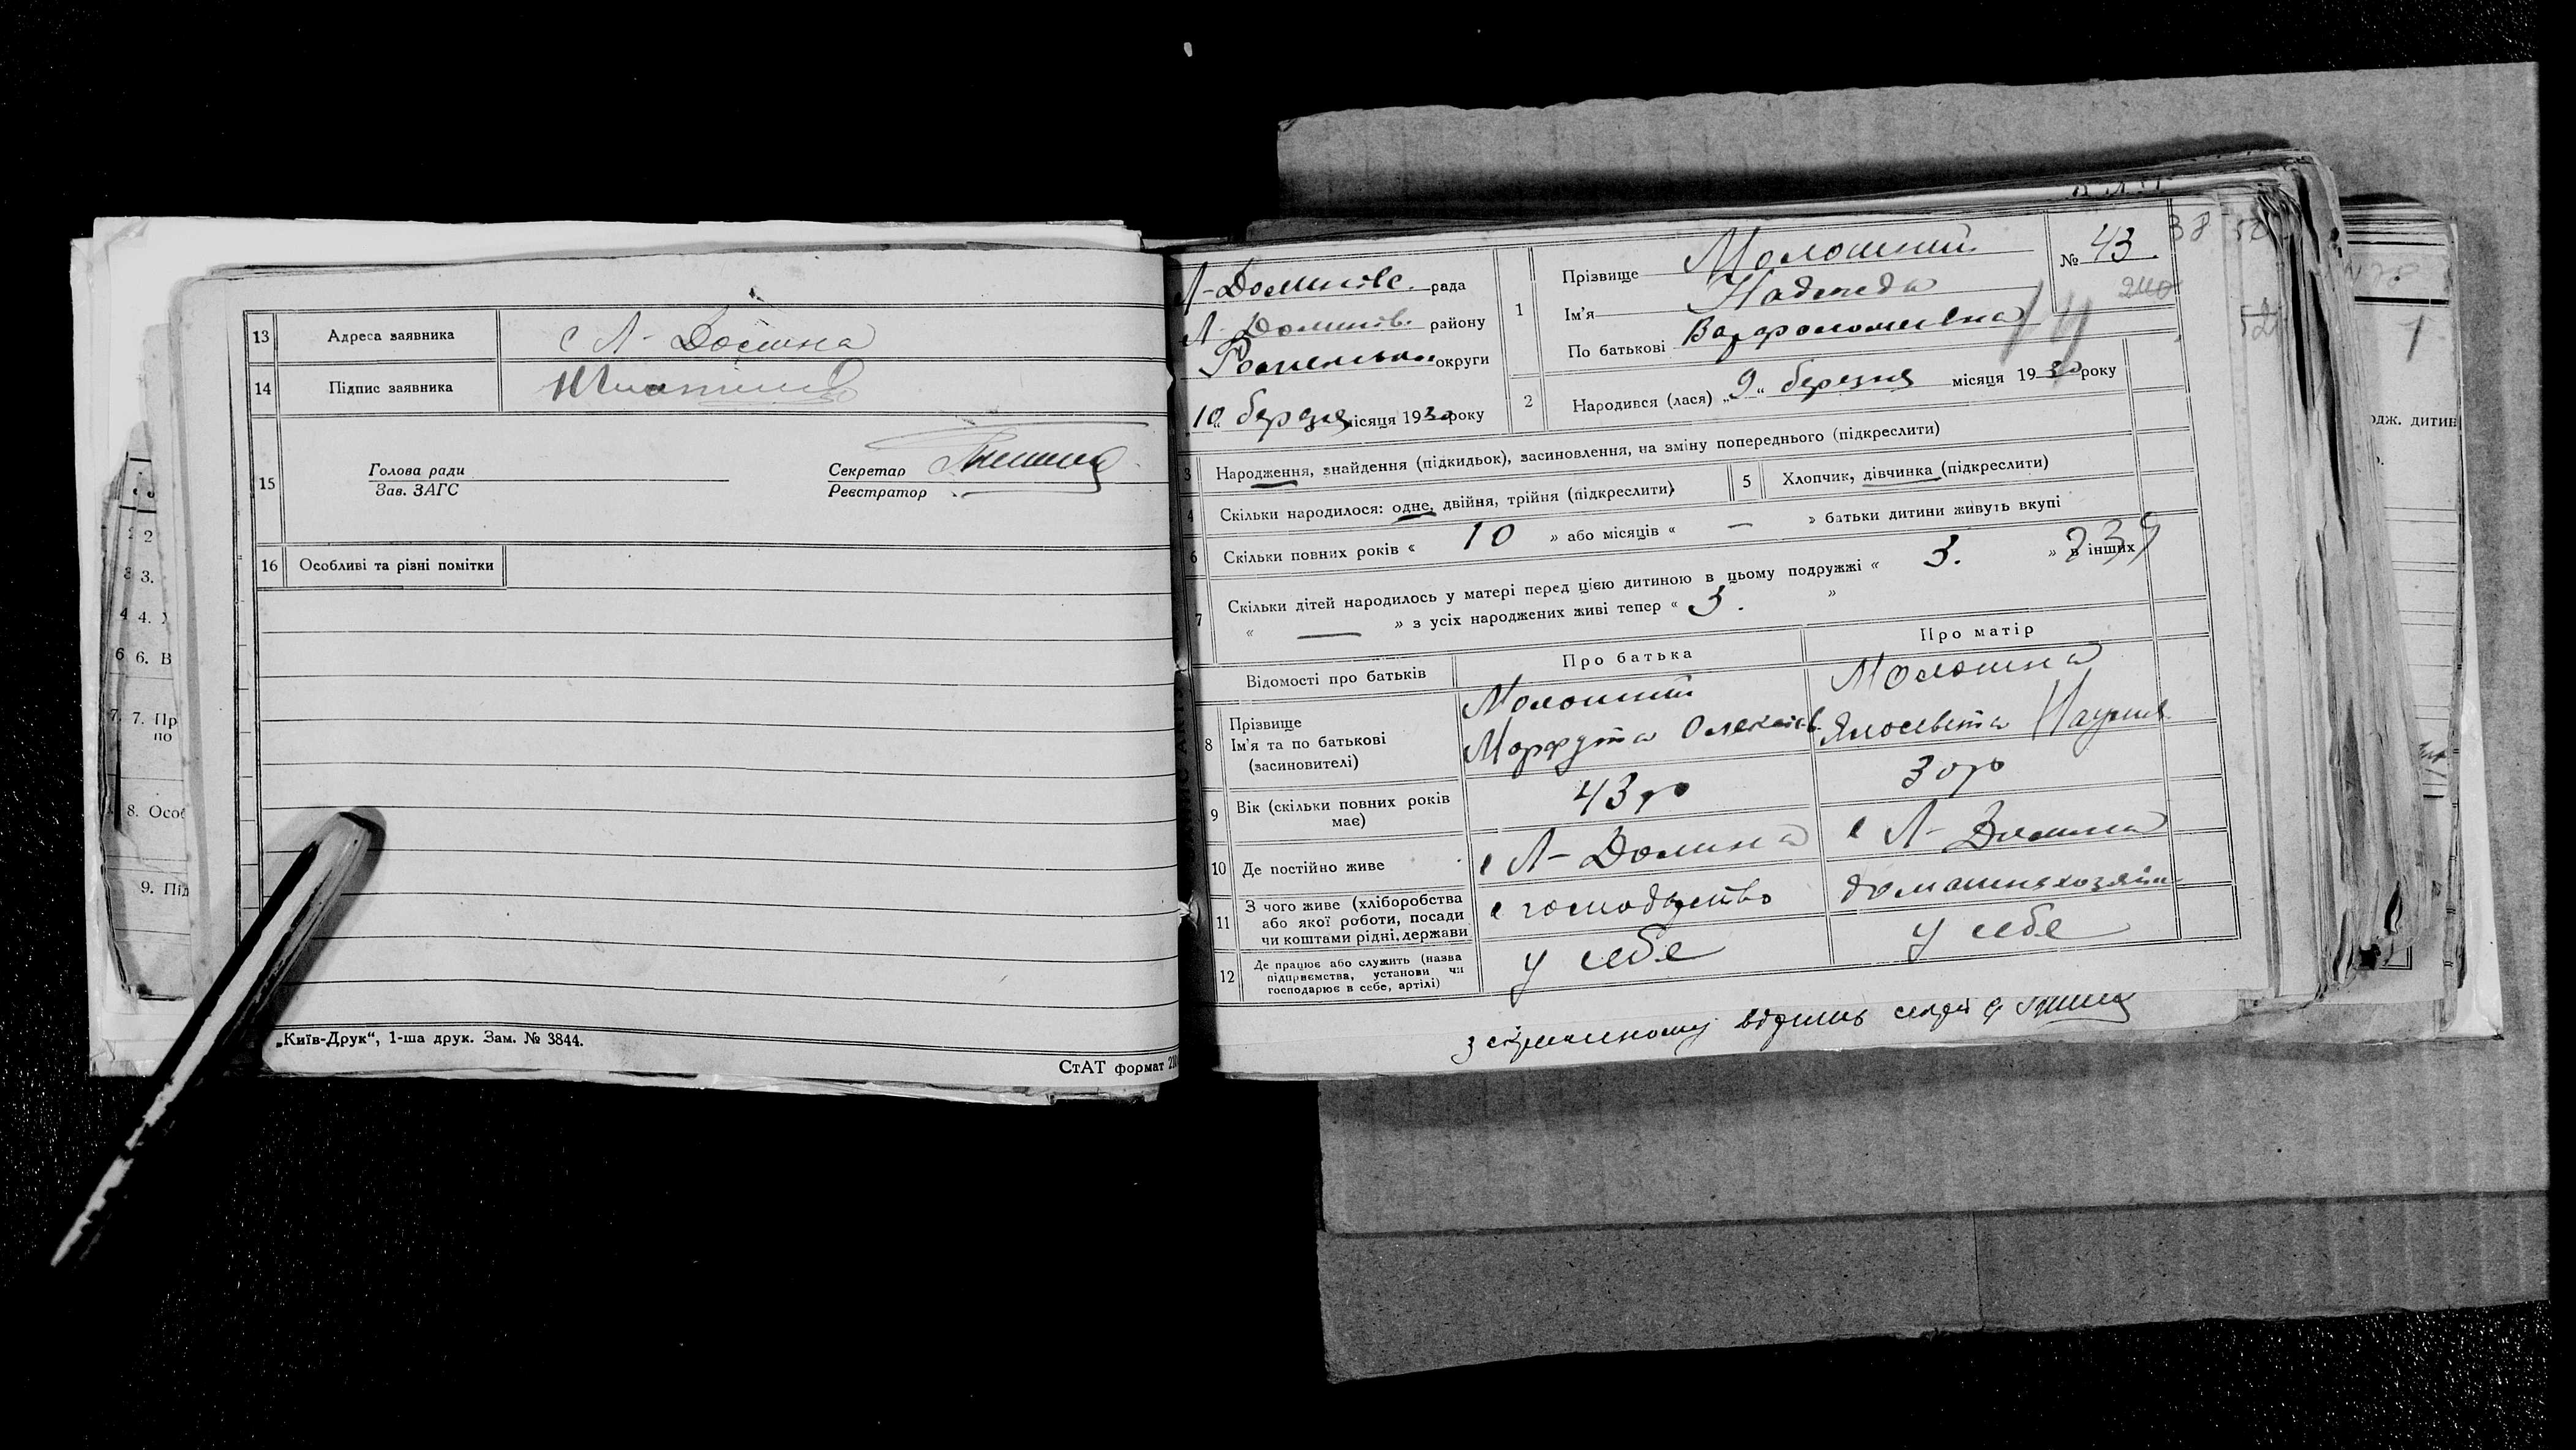 13 Адреса заявника с Л-Долина
14 Підпис заявника
15 Голова ради Секретар
Зав. ЗАГС Реєстратор
16 Особливі та різні помітки
„Київ-Друк“, 1-ша друк. Зам. № 3844.
СтАТ формат
2
3.
4 4.
6 6. В
7. 7. Пр
по
8. Особ
9. Під
Л-Долинівс. рада
Л-Долинів. району
округи
10 березня місяця 1930 року
1 Прізвище Молошний
Ім'я Надежда
По батькові Варфоломеївна
№ 43.
38
240
2 Народився (лася) „9“ березня місяця 1930 року
3 Народження, знайдення (підкидьок), засиновлення, на зміну попереднього (підкреслити)
4 Скільки народилося: одне, двійня, трійня (підкреслити) 5 Хлопчик, дівчинка (підкреслити)
6 Скільки повних років « 10 » або місяців « — » батьки дитини живуть вкупі
7 Скільки дітей народилось у матері перед цією дитиною в цьому подружжі « 3. » в інших
« — » з усіх народжених живі тепер « 3. »
239
Відомості про батьків Про батька Про матір
8 Прізвище Молошний Молошна
Ім'я та по батькові
(засиновителі)
9 Вік (скільки повних років має) 43 р 30 р
10 Де постійно живе с Л-Долина с Л-Долина
11 З чого живе (хліборобства
або якої роботи, посади
чи коштами рідні, держави
с господарство
12 Де працює або служить (назва
підприємства, установи чи
господарює в себе, артілі)
у себе у себе
одж. дитин